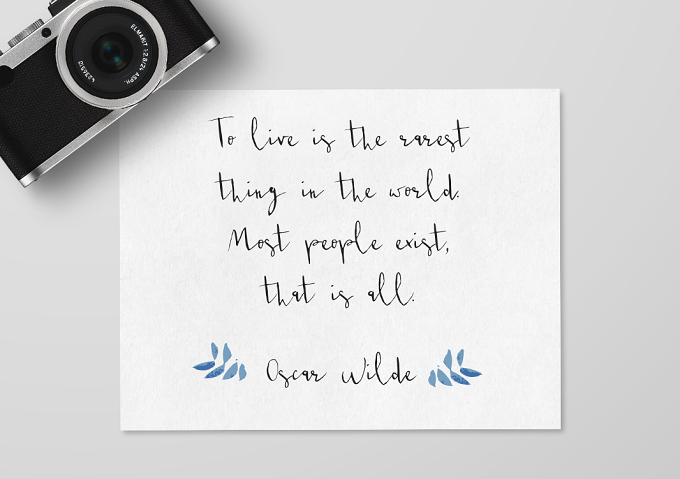 ELMARIT 1:2.8/24 ASPH.
To live is the rarest
thing in the world.
Most people exist,
that is all.
Oscar Wilde